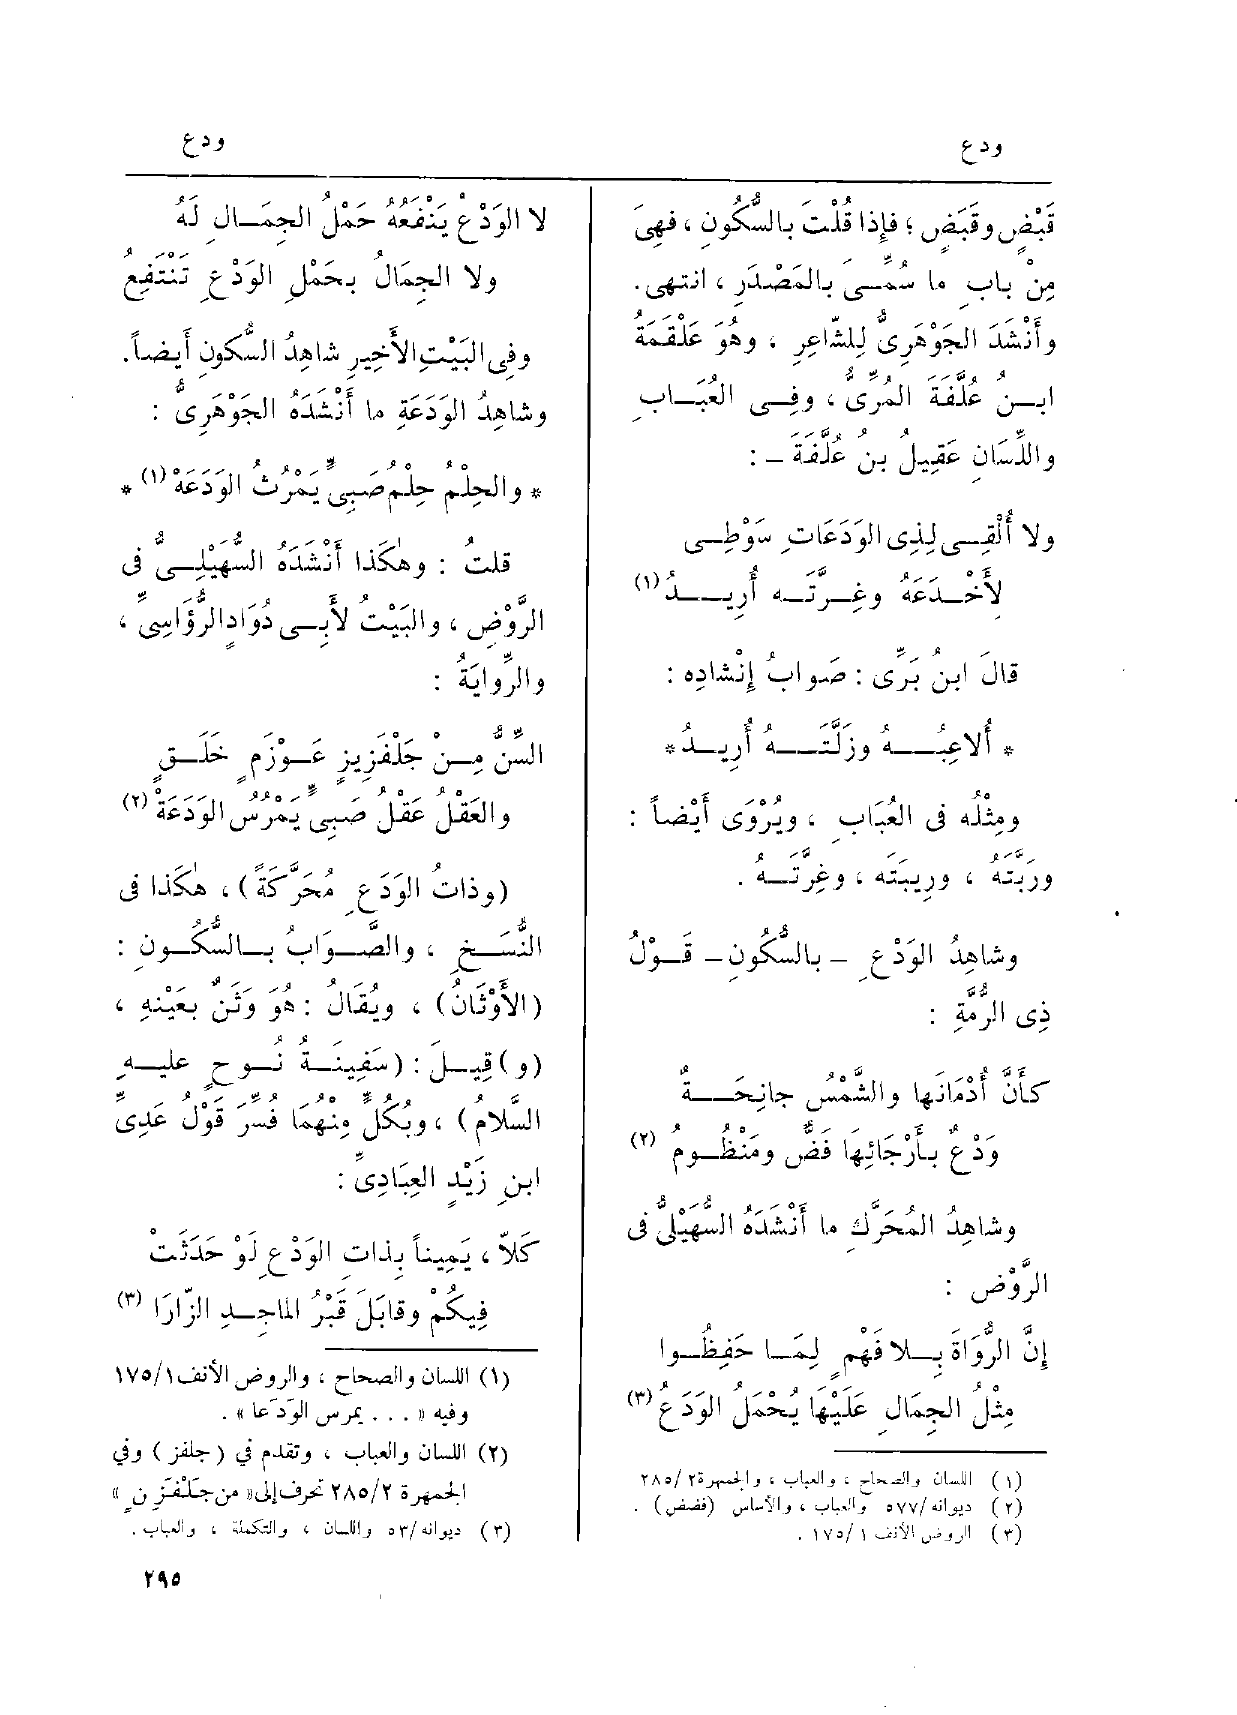 ودع
ودع
قَبْضٍ وقَبَضٍ ؛ فإِذا قُلْتَ بالسُّكُونِ ، فهِىَ
مِنْ بابِ ما سُمِّـى بالمَصْدَرِ ، انتهى .
وأَنْشَدَ الجَوْهَرِىُّ لِلشّاعِرِ ، وهُوَ عَلْقَمَةُ
ابـنُ عُلَّفَةَ المُرِّىُّ ، وفِـى العُبَـابِ
واللِّسَانِ عَقِيلُ بنُ عُلَّفَةَ – :
ولا أُلْقِـى لِذِى الوَدَعَاتِ سَوْطِـى
لأَخْـدَعَهُ وغِـرَّتَـه أُرِيـدُ (١)
قالَ ابنُ بَرِّى : صَوابُ إِنْشادِه :
* أُلاعِبُـهُ وزَلَّتَـهُ أُرِيـدُ *
ومِثْلُه فى العُبَابِ ، ويُرْوَى أَيْضاً :
ورَبَّتَهُ ، ورِيبَتَه ، وغِرَّتَـه .
وشاهِدُ الوَدْعِ – بالسُّكُونِ – قَـوْلُ
ذِى الرُّمَّةِ :
كأَنَّ أُدْمَانَها والشَّمْسُ جانِحَـةُ
وَدْعٌ بـأَرْجَائِهَا فَضٌّ ومَنْظُـومُ (٢)
وشاهِدُ المُحَرَّكِ ما أَنْشَدَهُ السُّهَيْلِىُّ فى
الرَّوْضِ :
إِنَّ الرُّوَاةَ بِـلا فَهْمٍ لِمَـا حَفِظُـوا
مِثْلُ الجِمَالِ عَلَيْهَا يُحْمَلُ الوَدَعُ (٣)
(١) اللسان والصحاح ، والعباب ، والجمهرة ٢/ ٢٨٥
(٢) ديوانه / ٥٧٧ والعباب ، والأساس (فضض) .
(٣) الروض الأنف ١ / ١٧٥ .
لا الوَدْعُ يَنْفَعُهُ حَمْلُ الجِمَـالِ لَهُ
ولا الجِمَالُ بحَمْلِ الوَدْعِ تَنْتَفِعُ
وفِى البَيْتِ الأَخِيرِ شاهِدُ السُّكُونِ أَيضاً .
وشاهِدُ الوَدَعَةِ ما أَنْشَدَهُ الجَوْهَرِىُّ :
* والحِلْمُ حِلْمُ صَبِىٍّ يَمْرُثُ الوَدَعَهْ (١) *
قلتُ : وهٰكَذا أَنْشَدَهُ السُّهَيْلِـىُّ فى
الرَّوْضِ ، والبَيْتُ لأَبِـى دُوَادٍ الرُّؤَاسِىِّ ،
والرِّوايَةُ :
السِّنُّ مِـنْ جَلْفَزِيزٍ عَـوْزَمٍ خَلَـقٍ
والعَقْلُ عَقْلُ صَبِىٍّ يَمْرُسُ الوَدَعَهْ (٢)
(وذاتُ الوَدَعِ مُحَرَّكَةً) ، هٰكَذا فى
النُّسَـخِ ، والصَّـوَابُ بـالسُّكُـونِ :
(الأَوْثَانُ) ، ويُقَالُ : هُوَ وَثَنٌ بعَيْنِهِ ،
(و) قِيـلَ : (سَفِينَـةُ نُـوحٍ عليـهِ
السَّلامُ) ، وبُكُلٍّ مِنْهُمَا فُسِّرَ قَوْلُ عَدِىِّ
ابنِ زَيْدٍ العِبَادِىِّ :
كَلاَّ ، يَمِيناً بِذاتِ الوَدْعِ لَوْ حَدَثَتْ
فِيكُمْ وقابَلَ قَبْرُ الماجِـدِ الزّارَا (٣)
(١) اللسان والصحاح ، والروض الأنف ١/ ١٧٥
وفيه « . . . يمرس الوَدَعا » .
(٢) اللسان والعباب ، وتقدم في (جلفز) وفي
الجمهرة ٢/ ٢٨٥ تحرف إلى « من جَلْفَزِنٍ »
(٣) ديوانه / ٥٣ واللسان ، والتكملة ، والعباب .
٢٩٥